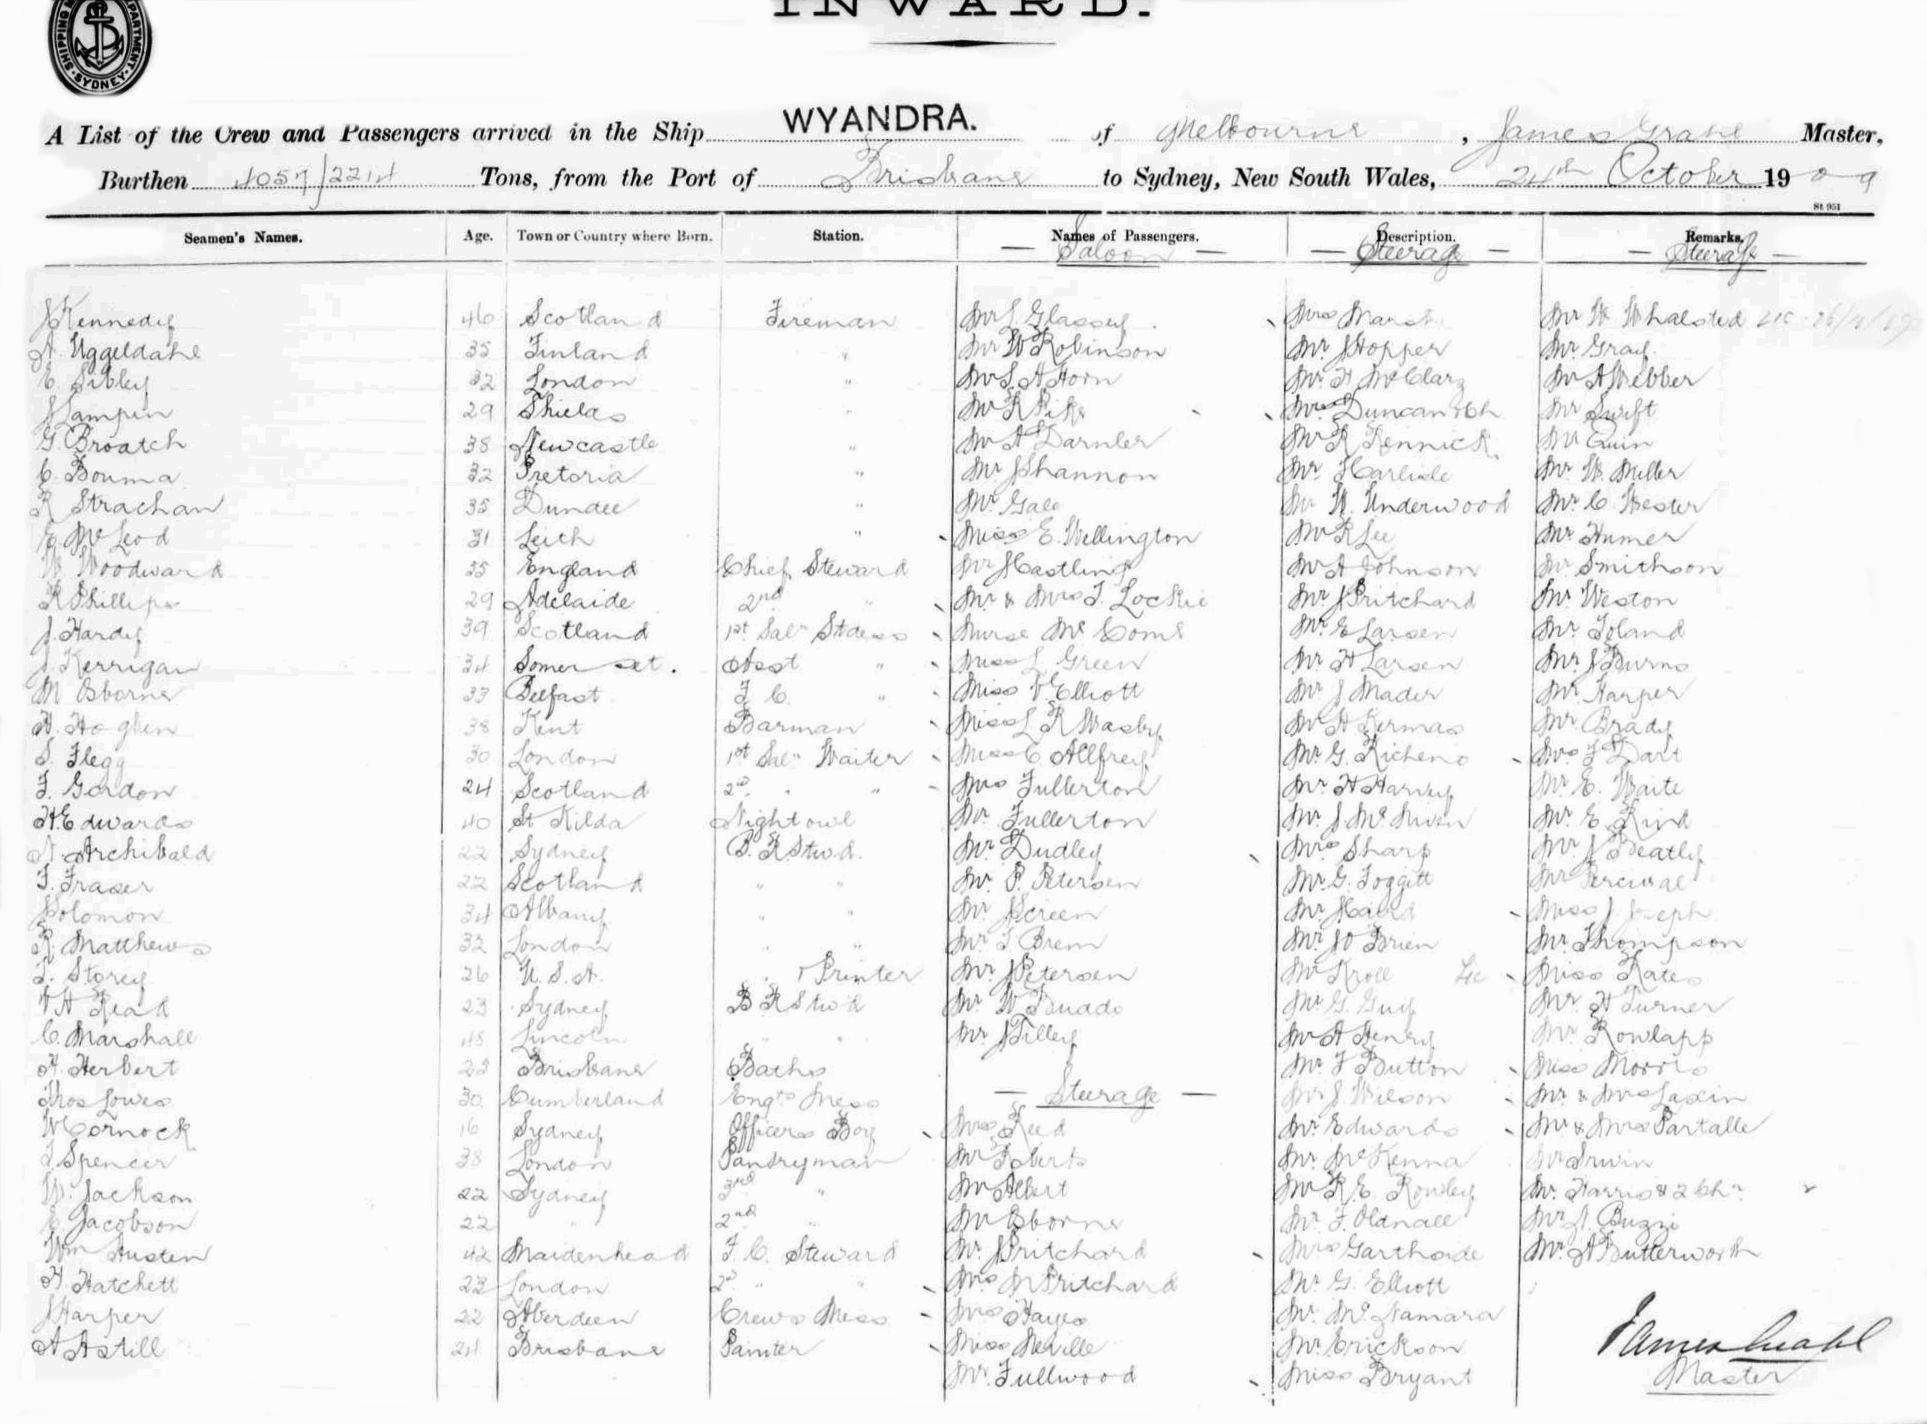 INWARD.
SHIPPING DEPARTMENT SYDNEY
A List of the Crew and Passengers arrived in the Ship WYANDRA. of Melbourne, James Grahl Master,
Burthen 4057/2214 Tons, from the Port of Brisbane to Sydney, New South Wales, 24th October 1909
St 951
Seamen's Names. Age. Town or Country where Born. Station. Names of Passengers. Description. Remarks.
— Saloon — — Steerage — — Steerage —
J Kennedy 46 Scotland Fireman Mr J Glassey Mrs Marsh Mr W Whalsted
A. Uggeldahl 35 Finland " Mr W Robinson Mr J Hopper Mr Gray
E. Sibley 32 London " Mr S. A Horn Mr. H McClarg Mr A Webber
J Lampen 29 Shields " Mr R Pike Mrs Duncan & Ch Mr Swift
G. Broatch 38 Newcastle " Mr A Darnler Mr R Rennick Mr Quin
C. Bouma 32 Pretoria " Mr J Shannon Mr J Carlisle Mr. W. Miller
R Strachan 35 Dundee " Mr. Gale Mr W. Underwood Mr. C. Wester
E McLeod 31 Leith " Miss E. Wellington Mr R Lee Mr Humer
W Woodward 35 England Chief Steward Mr J Castling Mr A Johnson Mr Smithson
R Phillips 29 Adelaide 2nd " Mr & Mrs T. Lockie Mr J Pritchard Mr Weston
J. Hardy 39 Scotland 1st Saln Stdess Nurse McComb Mr. E Larsen Mr Toland
J. Kerrigan 34 Somerset. Asst " Miss L Green Mr H Larsen Mr J Burns
M Osborne 33 Belfast F. C. " Miss V Elliott Mr J Mader Mr Harper
H. Hogben 38 Kent Barman Miss L R Wasby Mr A Kermas Mr Brady
S. Flegg 30 London 1st Saln Waiter Miss C Allfrey Mr. G. Richens Mrs F Dart
F. Gordon 24 Scotland 2nd " " Mrs Fullerton Mr H Harvey Mr E. Waite
H. Edwards 40 St Kilda Nightowl Mr. Fullerton Mr. J McNiven Mr E Kind
A Archibald 22 Sydney B. R Stwd. Mr. Dudley Mrs Sharp Mr. J Beatly
F. Fraser 22 Scotland " " Mr. P. Petersen Mr. G. Foggitt Mr Percival
J Solomon 34 Albany " " Mr J Screen Mr J Caird Miss J Joseph
R. Matthews 32 London " " Mr. T Brem Mr J O'Brien Mr Thompson
T. Storey 26 U. S. A. " & Printer Mr J Petersen Mr Kroll Miss Kates
V A Read 23 Sydney B R Stwd Mr. W Budds Mr. G. Guy Mr. H Turner
C. Marshall 48 Lincoln " " Mr. J Tilley Mr A Henry Mr. Rowlapp
H. Herbert 23 Brisbane Baths Mr. F Button Miss Morris
Thos Lowes 30 Cumberland Engrs Mess — Steerage — Mr J. Wilson Mr & Mrs Saxin
W Cornock 16 Sydney Officers Boy Mrs Reed Mr Edwards Mr & Mrs Partalle
J Spencer 38 London Pantryman Mr Roberts Mr McKenna Mr Irwin
W. Jackson 22 Sydney 3rd " Mr Albert Mr R. E. Rowley Mr. Harris & 2 Chn
E Jacobson 22 " 2nd " Mr Osborne Mr. F. Oldnall Mr A. Buzzi
Wm Austen 42 Maidenhead F. C. Steward Mr. J Pritchard Mrs Garthside Mr. A Butterworth
H. Hatchett 23 London 2nd " " Mrs J Pritchard Mr. G. Elliott
J Harper 22 Aberdeen Crews Mess Mrs Hayes Mr. McNamara
A Astill 24 Brisbane Painter Miss Neville Mr. Erickson
Mr. Fullwood Miss Bryant
James Grahl
Master